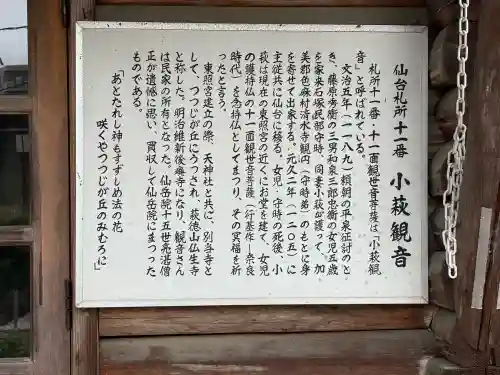 仙台札所十一番　小萩観音
札所十一番、十一面観世音菩薩は「小萩観
音」と呼ばれている。
文治五年（一一八九）頼朝の平泉征討のと
き、藤原秀衡の三男和泉三郎忠衡の女児五歳
を家来石塚民部守時、同妻小萩が護って、加
美郡色麻村清水寺観円（守時弟）のもとに身
を寄せて出家する。元久二年（一二〇五）に
主従共に仙台に移る。女児・守時の死後、小
萩は現在の東照宮の近くにお堂を建て、女児
の護持仏の十一面観世音菩薩（行基作・奈良
時代）を念持仏としてまつり、その冥福を祈
ったと言う。
東照宮建立の際、天神社と共に、別当寺と
して、つつじが丘にうつされ、萩徳山仏生寺
と称した。明治維新後廃寺になり、観音さん
は民家の所有となった。仙岳院十五世亮湛僧
正が遺憾に思い、買収して仙岳院にまつった
ものである。
「あとたれし神もすずしめ法の花
咲くやつつじが丘のみむろに」